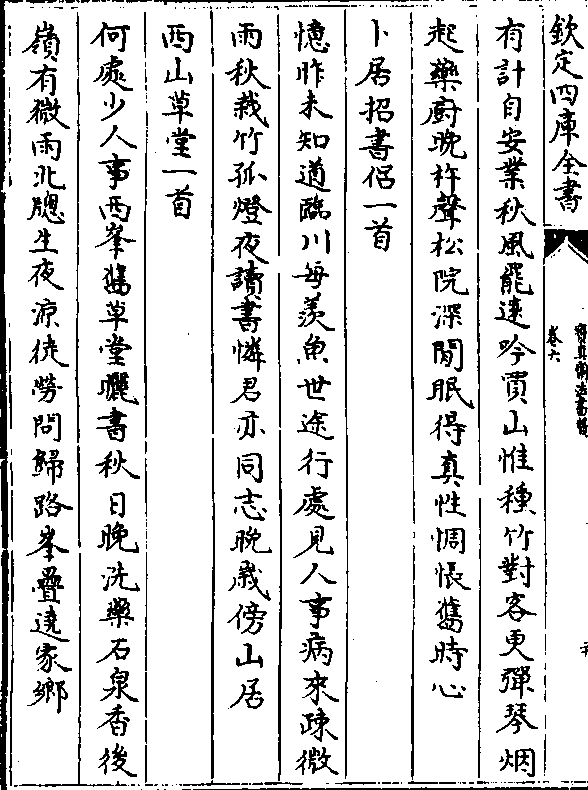 欽定四庫全書
卷六
有計自安業秋風罷遠吟買山惟種竹對客更彈琴烟
起藥厨晚杵聲松院深閒眠得真性惆悵舊時心
卜居招書侣一首
憶昨未知道臨川每羡魚世途行處見人事病來踈微
雨秋栽竹孤燈夜讀書憐君亦同志晚歲傍山居
西山草堂一首
何處少人事西峯舊草堂曬書秋日晚洗藥石泉香後
嶺有微雨北牕生夜涼徒勞問歸路峯疊遶家鄉